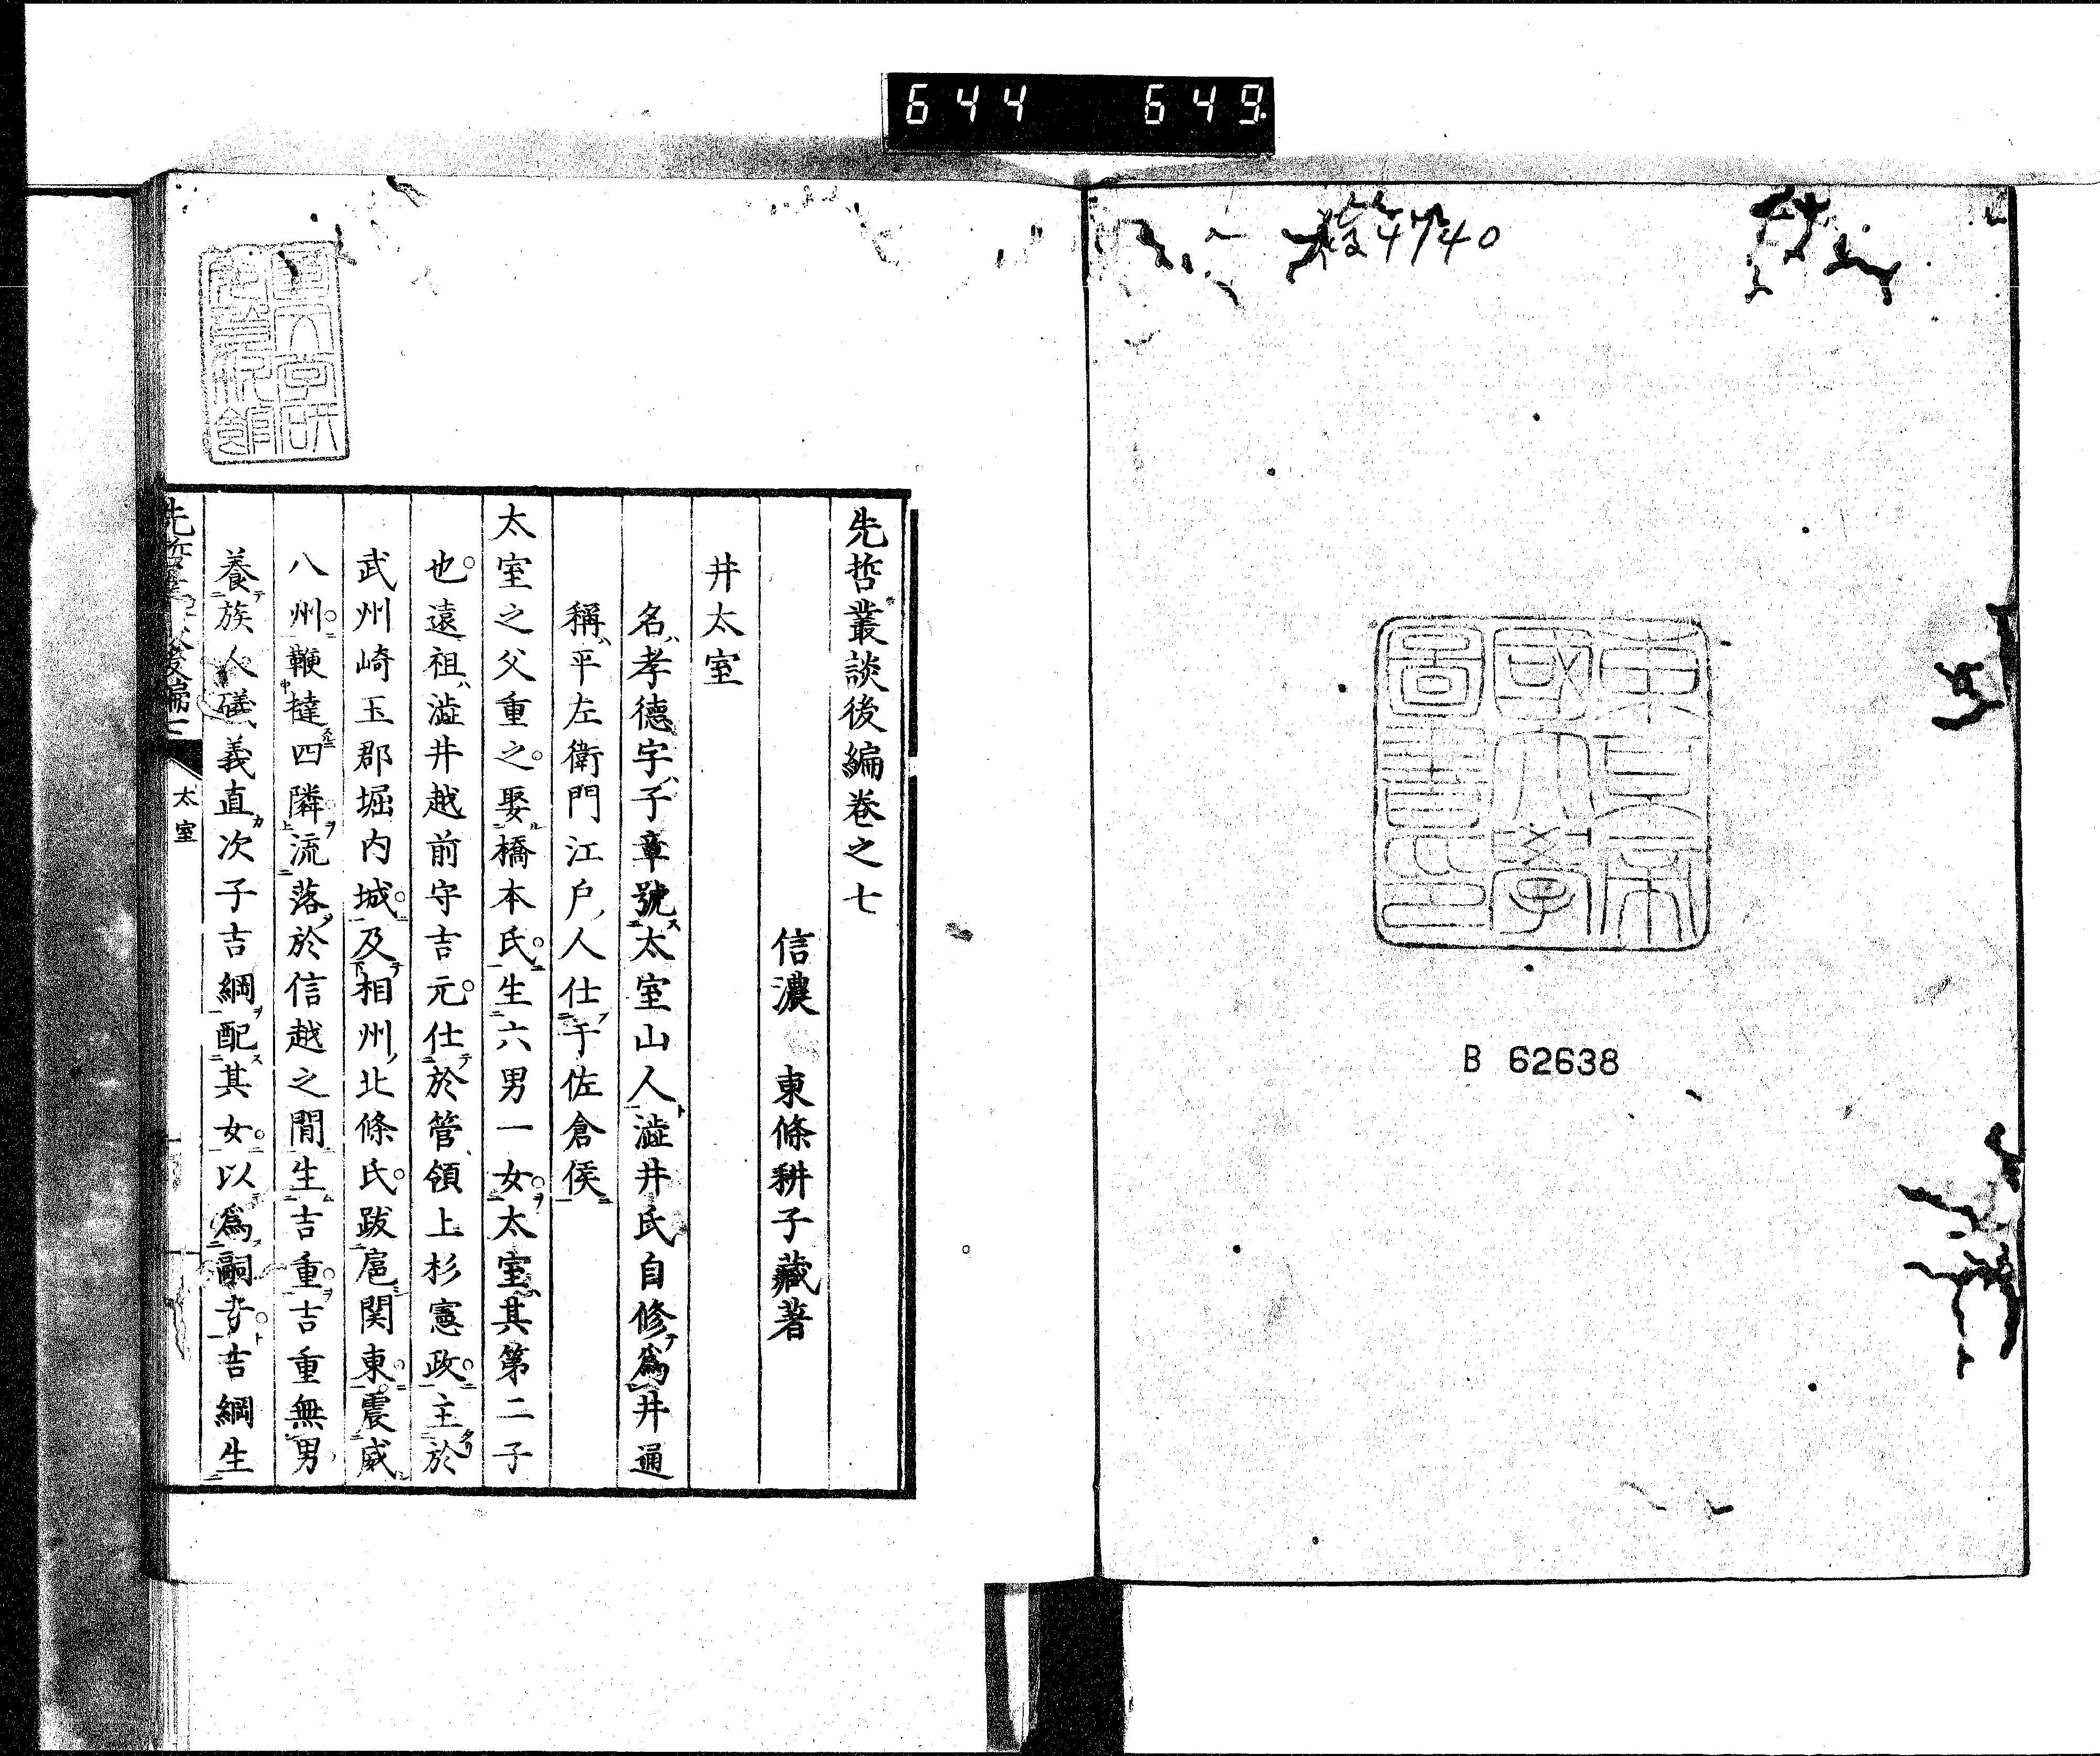 644 649.
4740
東京帝
國大學
圖書印
B 62638
先哲叢談後編卷之七
信濃 東條耕子藏著
井太室
名孝德字子章號太室山人澁井氏自修爲井通
稱平左衛門江戶人仕于佐倉侯
太室之父重之娶橋本氏生六男一女太室其第二子
也遠祖澁井越前守吉元仕於管領上杉憲政主於
武州崎玉郡堀内城及相州北條氏跋扈関東震威
八州鞭撻四隣流落於信越之間生吉重吉重無男
養族人礒義直次子吉綱配其女以爲嗣子吉綱生
太室